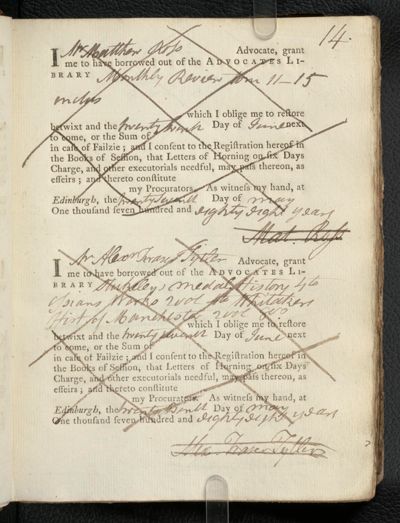 14.
I Mr Matthew Ross Advocate, grant
me to have borrowed out of the ADVOCATES LI-
BRARY Monthly Review from 11-15
inclus
which I oblige me to restore
betwixt and the twenty Day of June next
to come, or the Sum of
in case of Failzie; and I consent to the Registration hereof in
the Books of Session, that Letters of Horning on six Days
Charge, and other executorials needful, may pass thereon, as
effeirs; and thereto constitute
my Procurators. As witness my hand, at
Edinburgh, the Day of may
One thousand seven hundred and eighty Eight years
Mat. Ross
I Mr Alexr Fraser Tytler Advocate, grant
me to have borrowed out of the ADVOCATES LI-
BRARY medal History 4to
Works 2vol Whitakers
Hist of Manchester 2vol
which I oblige me to restore
betwixt and the twenty seventh Day of June next
to come, or the Sum of
in case of Failzie; and I consent to the Registration hereof in
the Books of Session, that Letters of Horning on six Days
Charge, and other executorials needful, may pass thereon, as
effeirs; and thereto constitute
my Procurators. As witness my hand, at
Edinburgh, the twenty Day of may
One thousand seven hundred and eighty Eight years
Alex. Fraser Tytler